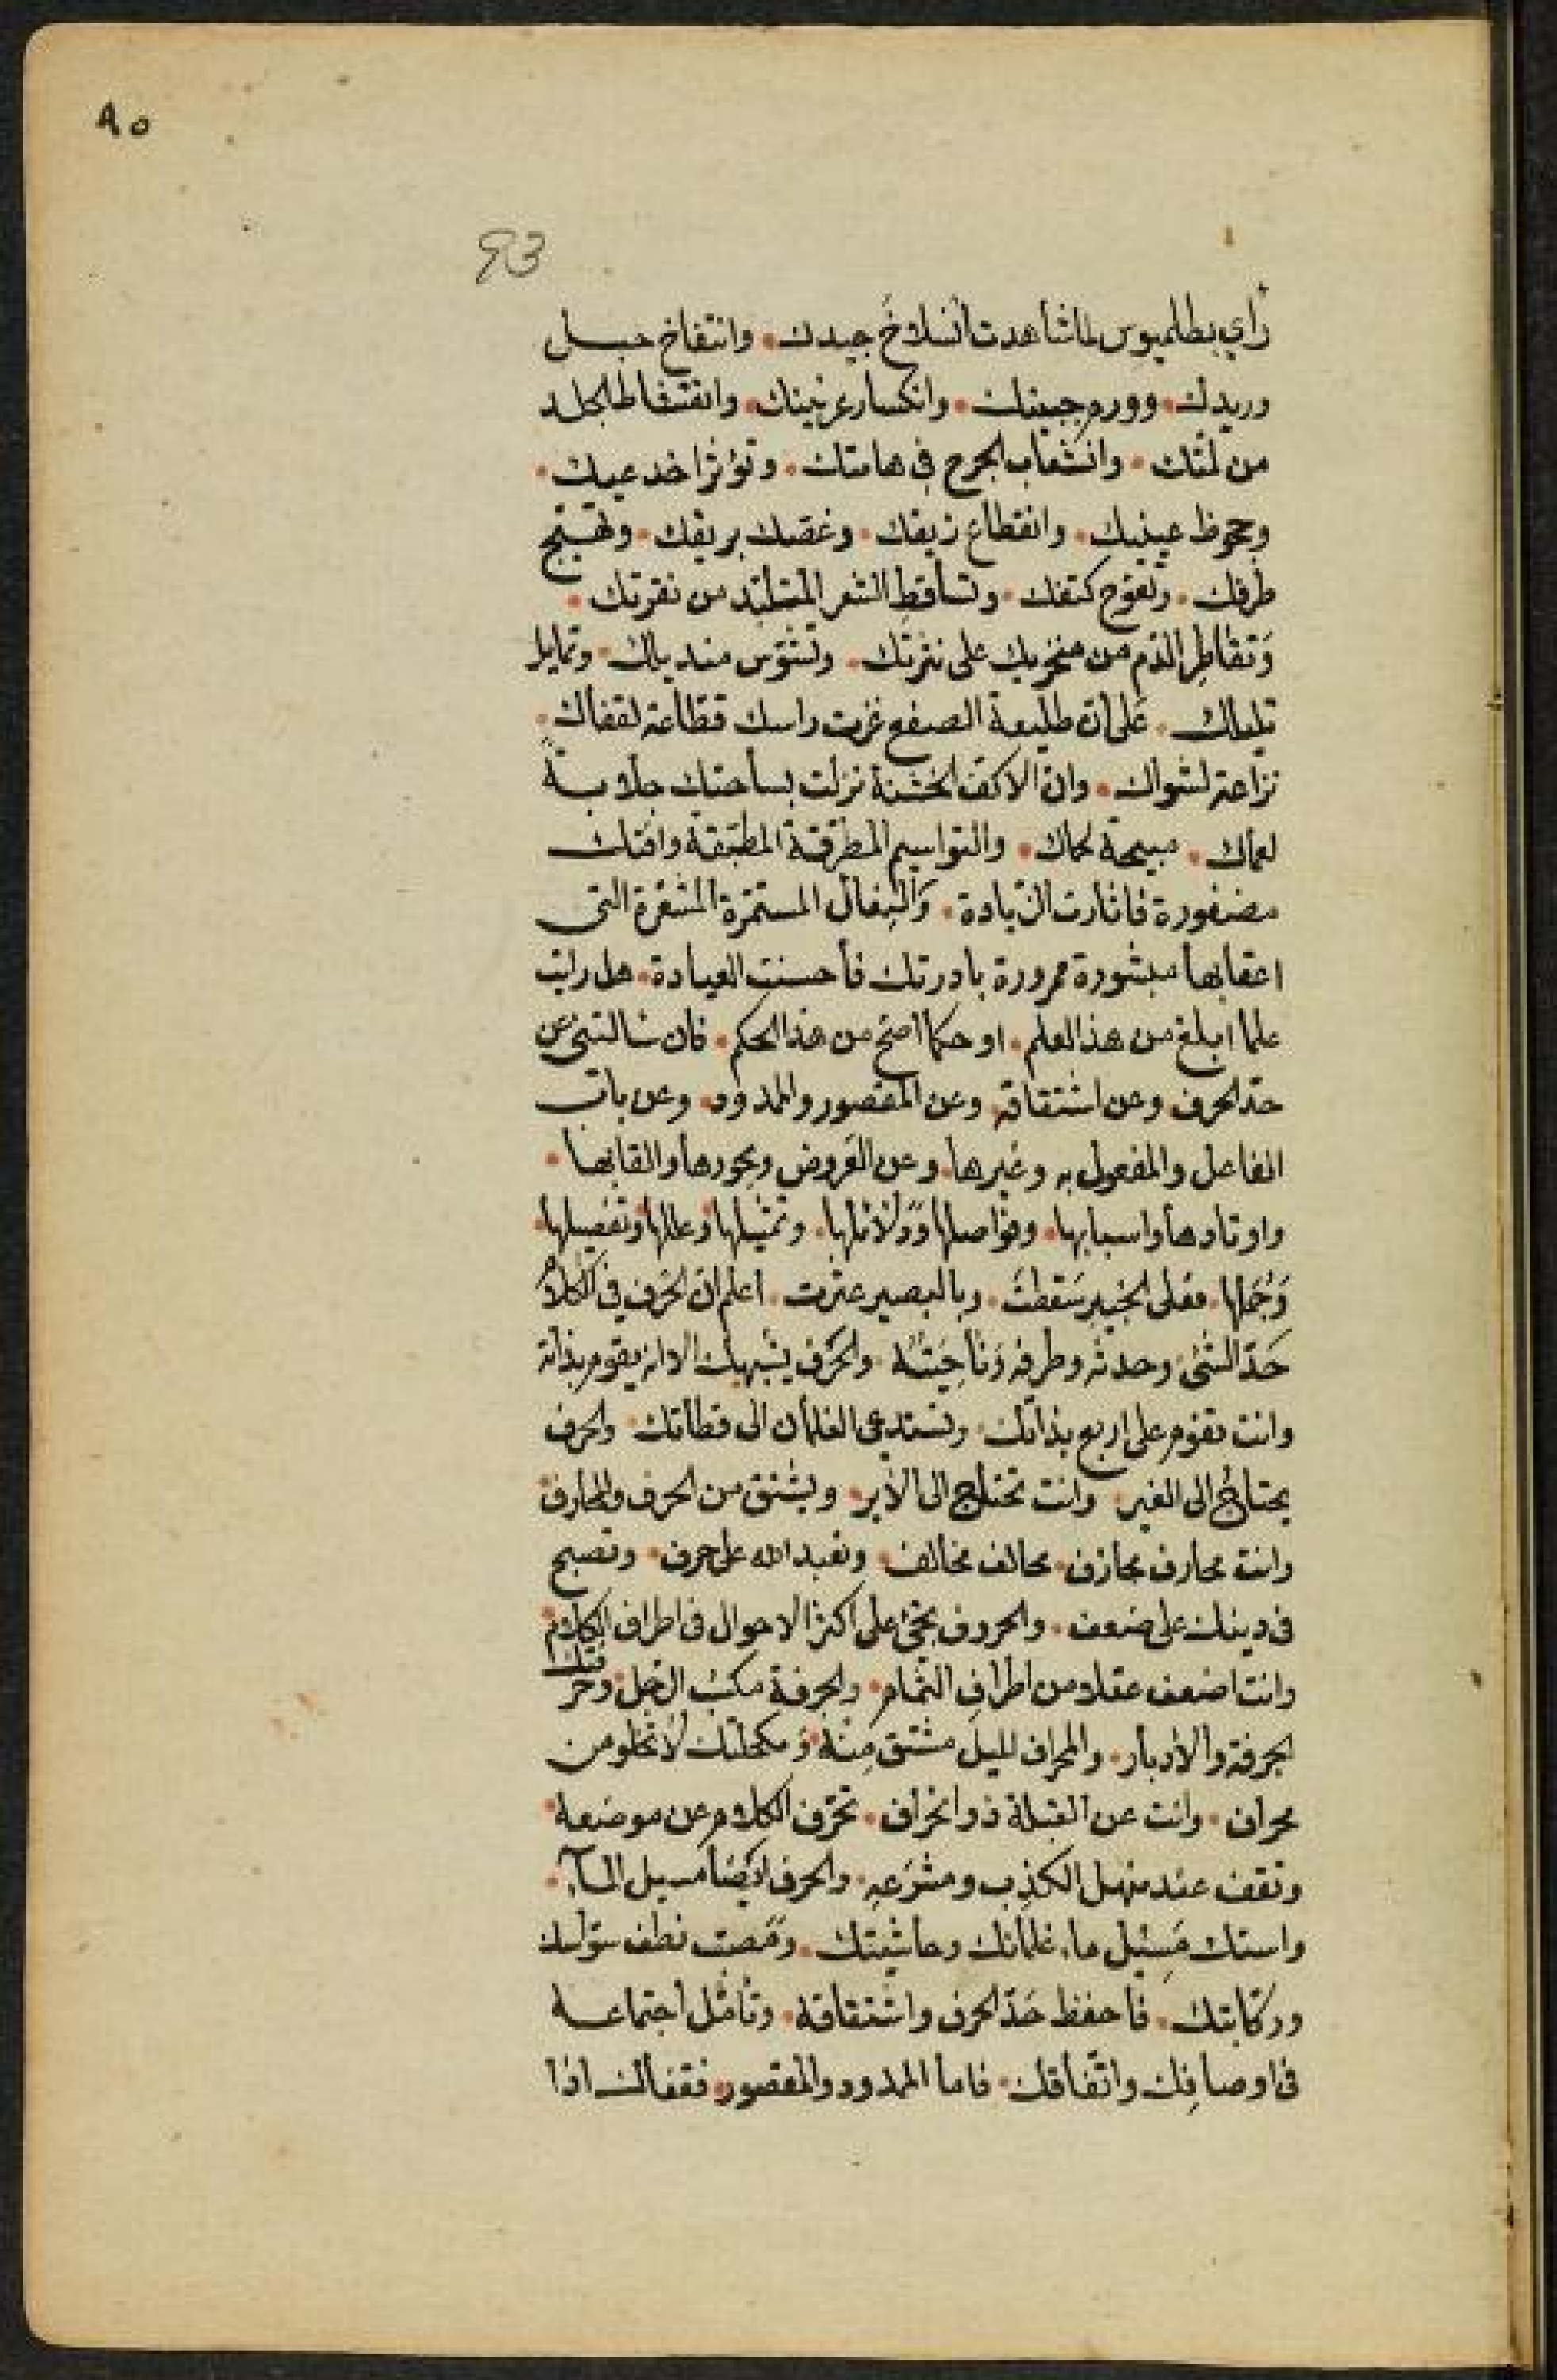 ٨٥
83
رأي بطلميوس لما شاهدت انسلاخ جيدك. وانتفاخ حبل
وريدك. وورم جبينك. وانكسار عرنينك. وانقشاط الجلد
من لمتك. وانشعاب الجرح في هامتك. وتوتر اخدعيك.
وجحوظ عينيك. وانقطاع زيقك. وغصك بريقك. وتهيج
طرفك. وتعوج كتفك. وتساقط الشعر المتلبد من نقرتك.
وتقاطر الدم من منخريك على نثرتك. وتشوس منديلك. وتمايل
على ان طليعة الصفع غزت راسك قطاعة لقفاك.
نزاعة لشواك. وان الاكف الخشنة نزلت بساحتك جلابة
لعماك. مبيحة لحماك. والتواسيم المطرقة المطبقة وافتك
مضفورة فاثارت الزيادة. والنعال المستمرة المشعرة التي
اعقابها مبشورة ممرورة بادرتك فأحسنت العيادة. هل رايت
علما ابلغ من هذا العلم. او حكما اصح من هذا الحكم. فان سالتني عن
حد الحرف وعن اشتقاقه وعن المقصور والممدود. وعن باب
الفاعل والمفعول به وغيرها. وعن العروض وبحورها والقابها.
واوتادها واسبابها. وفواصلها ودلائلها. وتمثيلها وعللها وتفصيلها.
وجملها. فعلى الخبير سقطت. وبالبصير عثرت. اعلم ان الحرف في الكلام
حد الشئ وحدثه وطرفه وناحيته والحرف يشبهك الا انه يقوم بذاته
وانت تقوم على اربع بذاتك. وتستدعي الغلمان الى قطاتك. والحرف
يحتاج الى الغير. وانت تحتاج الى الاير. ويشتق من الحرف والمحارف
وانت محارف مجازف. محالف مخالف. وتعبد الله على حرف. وتصبح
في دينك على ضعف. والحروف تجئ على اكثر الاحوال في اطراف الكلام
وانت اضعف عقلا من اطراف الثمام. والحرفة مكسب الرجل. وحرفتك
الحرفة والادبار. والمحراف للميل مشتق منه. ومكحلتك لا تخلو من
محراف. وانت عن القبلة ذو انحراف. تحرف الكلام عن موضعه.
وتقف عند منهل الكذب ومشرعه. والحرف ايضا مسيل الماء.
واستك مسيل ماء غلمانك وحاشيتك. ومصب نطف سواسك
وركابتك. فاحفظ حد الحرف واشتقاقه. وتأمل اجتماعه
في اوصافك واتفاقك. فاما الممدود والمقصور. فقفاك اذا